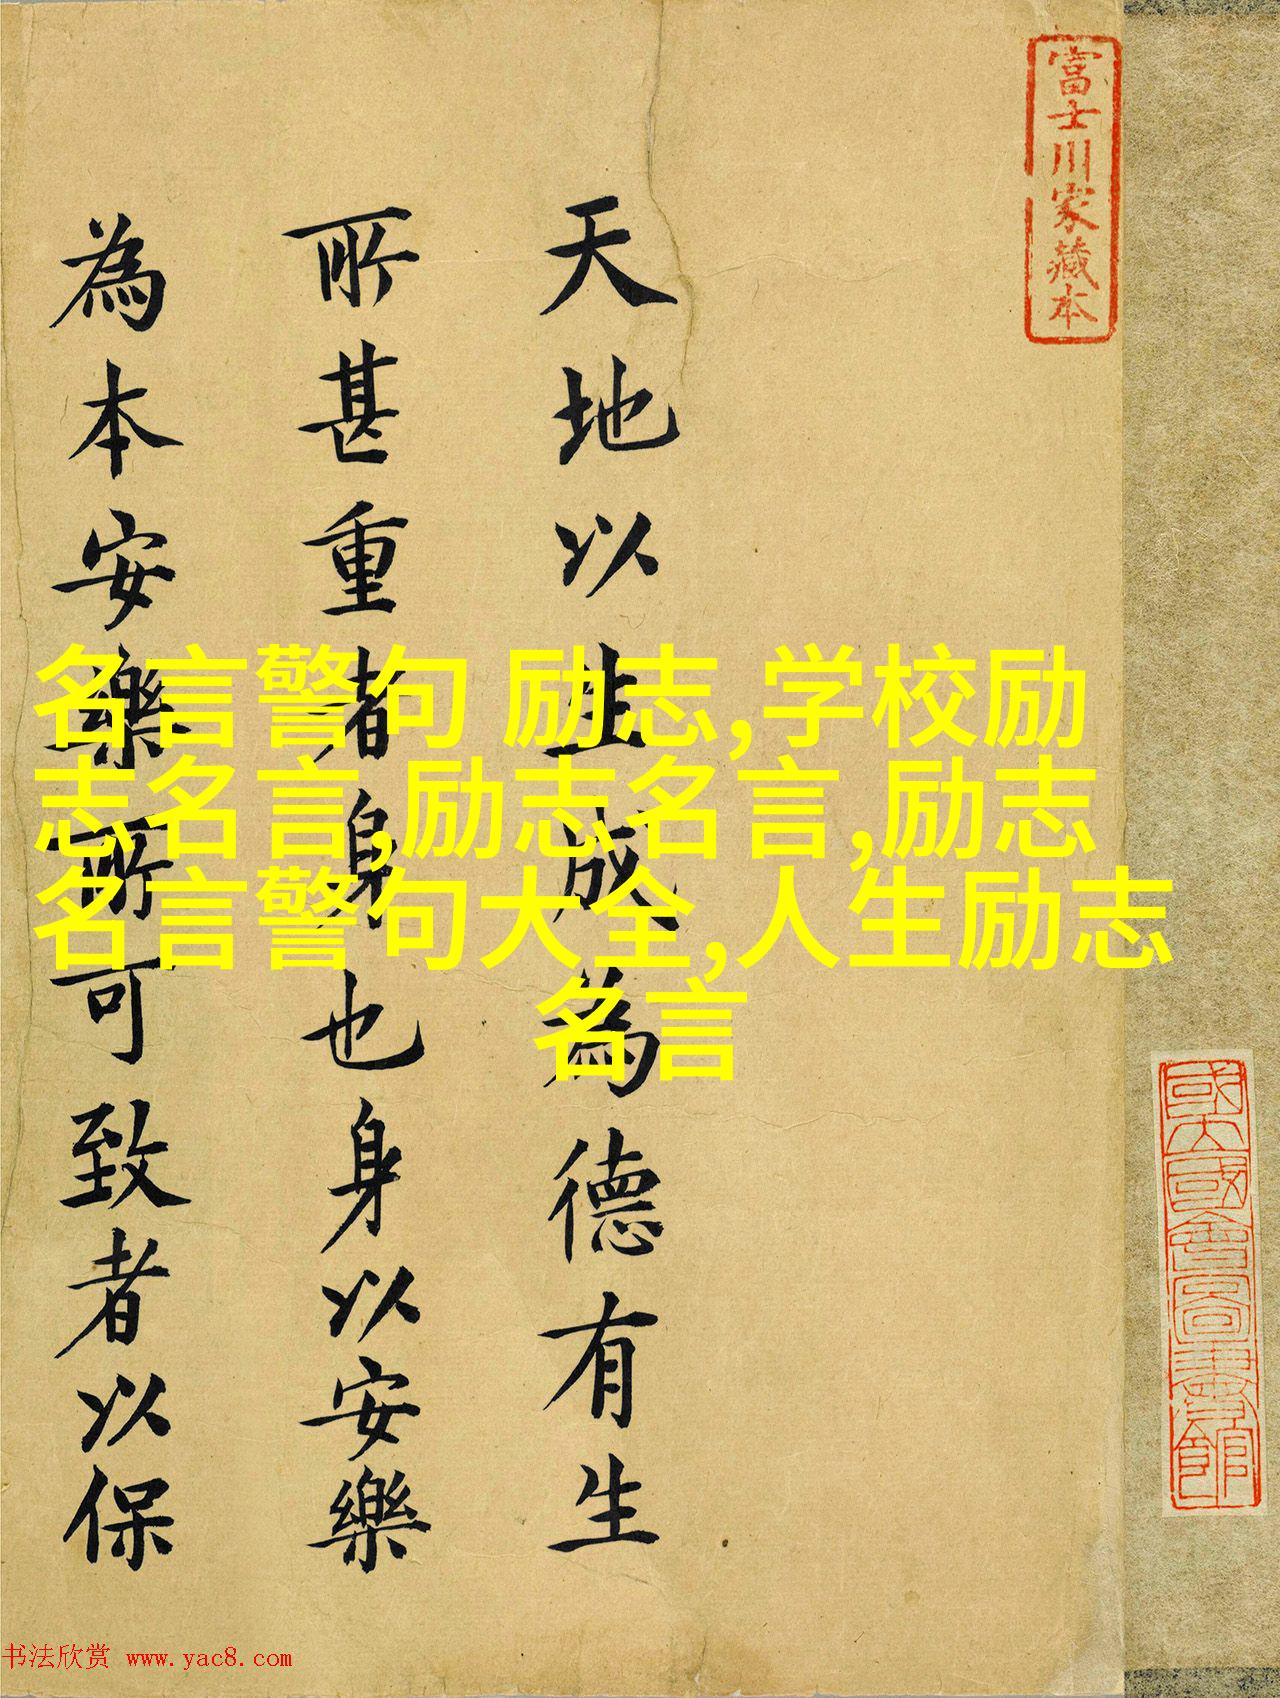 富士川家藏本
天地以生成為德有生
所甚重者身也身以安樂
為本安樂所可致者以保
名言警句 励志,学校励
志名言,励志名言,励志
名言警句大全,人生励志
名言
國大國會圖書館
书法欣赏 www.yac8.com